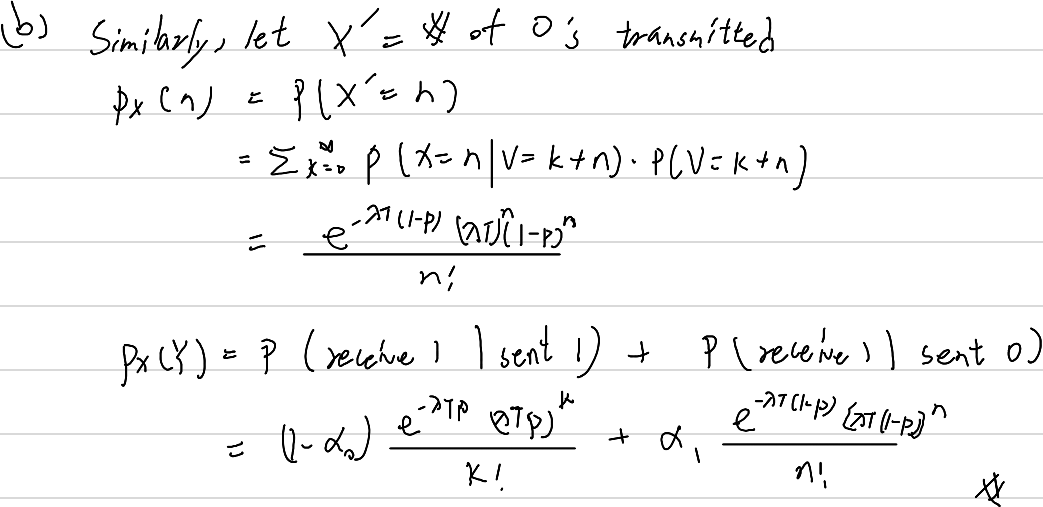 (b) Similarly, let X' = # of 0's transmitted
px(n) = P(X' = n)
= Σ_{k=0}^{∞} P(X = n | V = k+n) · P(V = k+n)
= e^{-λT(1-p)} (λT)^n (1-p)^n / n!
px(Y) = P (receive 1 | sent 1) + P (receive 1 | sent 0)
= (1-α₀) e^{-λTp} (λTp)^k / k! + α₁ e^{-λT(1-p)} (λT(1-p))^n / n! #